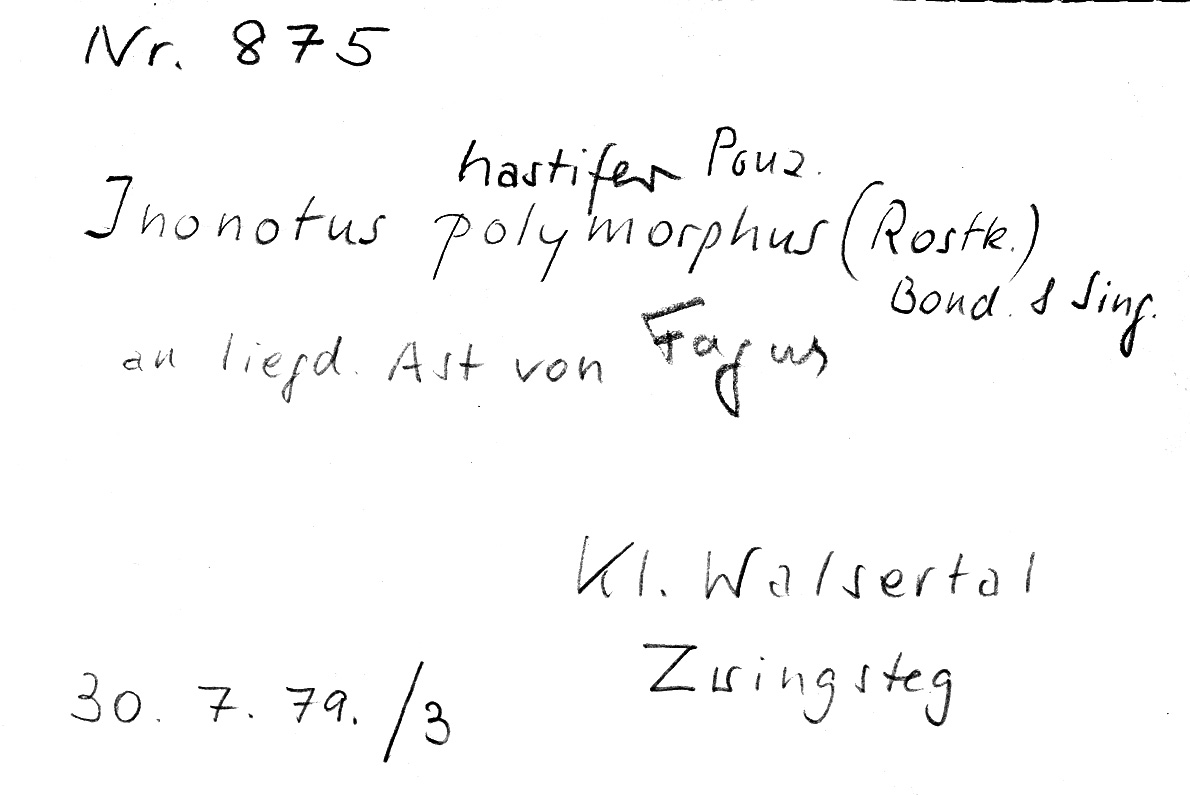 Nr. 875
hastifer Pouz.
Inonotus polymorphus (Rostk.)
Bond. & Sing.
an liegd. Ast von Fagus
Kl. Walsertal
Zwingsteg
30. 7. 79. /3